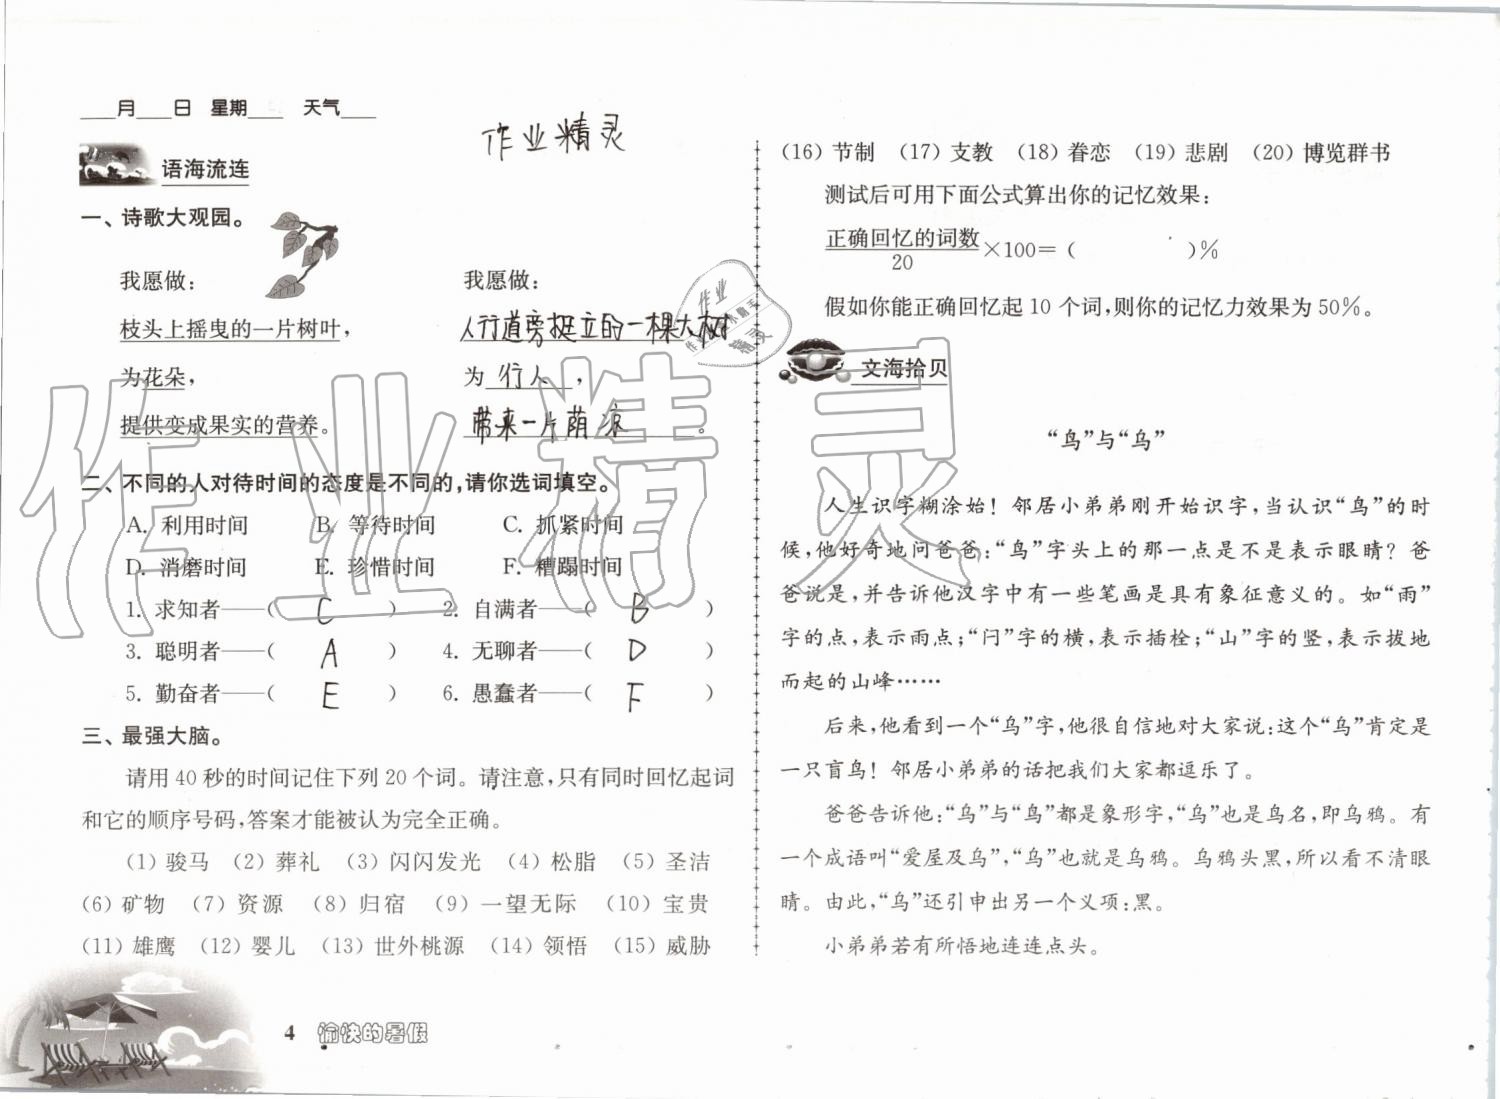 ____月____日 星期____ 天气____
作业精灵
语海流连
一、诗歌大观园。
我愿做：
枝头上摇曳的一片树叶，
为花朵，
提供变成果实的营养。
我愿做：
人行道旁挺立的一棵大树
为 行人 ，
带来一片荫凉 。
二、不同的人对待时间的态度是不同的，请你选词填空。
A. 利用时间 B. 等待时间 C. 抓紧时间
D. 消磨时间 E. 珍惜时间 F. 糟蹋时间
1. 求知者——( C ) 2. 自满者——( B )
3. 聪明者——( A ) 4. 无聊者——( D )
5. 勤奋者——( E ) 6. 愚蠢者——( F )
三、最强大脑。
请用 40 秒的时间记住下列 20 个词。请注意，只有同时回忆起词
和它的顺序号码，答案才能被认为完全正确。
(1) 骏马 (2) 葬礼 (3) 闪闪发光 (4) 松脂 (5) 圣洁
(6) 矿物 (7) 资源 (8) 归宿 (9) 一望无际 (10) 宝贵
(11) 雄鹰 (12) 婴儿 (13) 世外桃源 (14) 领悟 (15) 威胁
4 愉快的暑假
(16) 节制 (17) 支教 (18) 眷恋 (19) 悲剧 (20) 博览群书
测试后可用下面公式算出你的记忆效果：
正确回忆的词数
20
×100＝( )％
假如你能正确回忆起 10 个词，则你的记忆力效果为 50％。
文海拾贝
“鸟”与“乌”
人生识字糊涂始！邻居小弟弟刚开始识字，当认识“鸟”的时
候，他好奇地问爸爸：“鸟”字头上的那一点是不是表示眼睛？爸
爸说是，并告诉他汉字中有一些笔画是具有象征意义的。如“雨”
字的点，表示雨点；“闩”字的横，表示插栓；“山”字的竖，表示拔地
而起的山峰……
后来，他看到一个“乌”字，他很自信地对大家说：这个“乌”肯定是
一只盲鸟！邻居小弟弟的话把我们大家都逗乐了。
爸爸告诉他：“乌”与“鸟”都是象形字，“乌”也是鸟名，即乌鸦。有
一个成语叫“爱屋及乌”，“乌”也就是乌鸦。乌鸦头黑，所以看不清眼
睛。由此，“乌”还引申出另一个义项：黑。
小弟弟若有所悟地连连点头。
作业精灵
作业
精灵